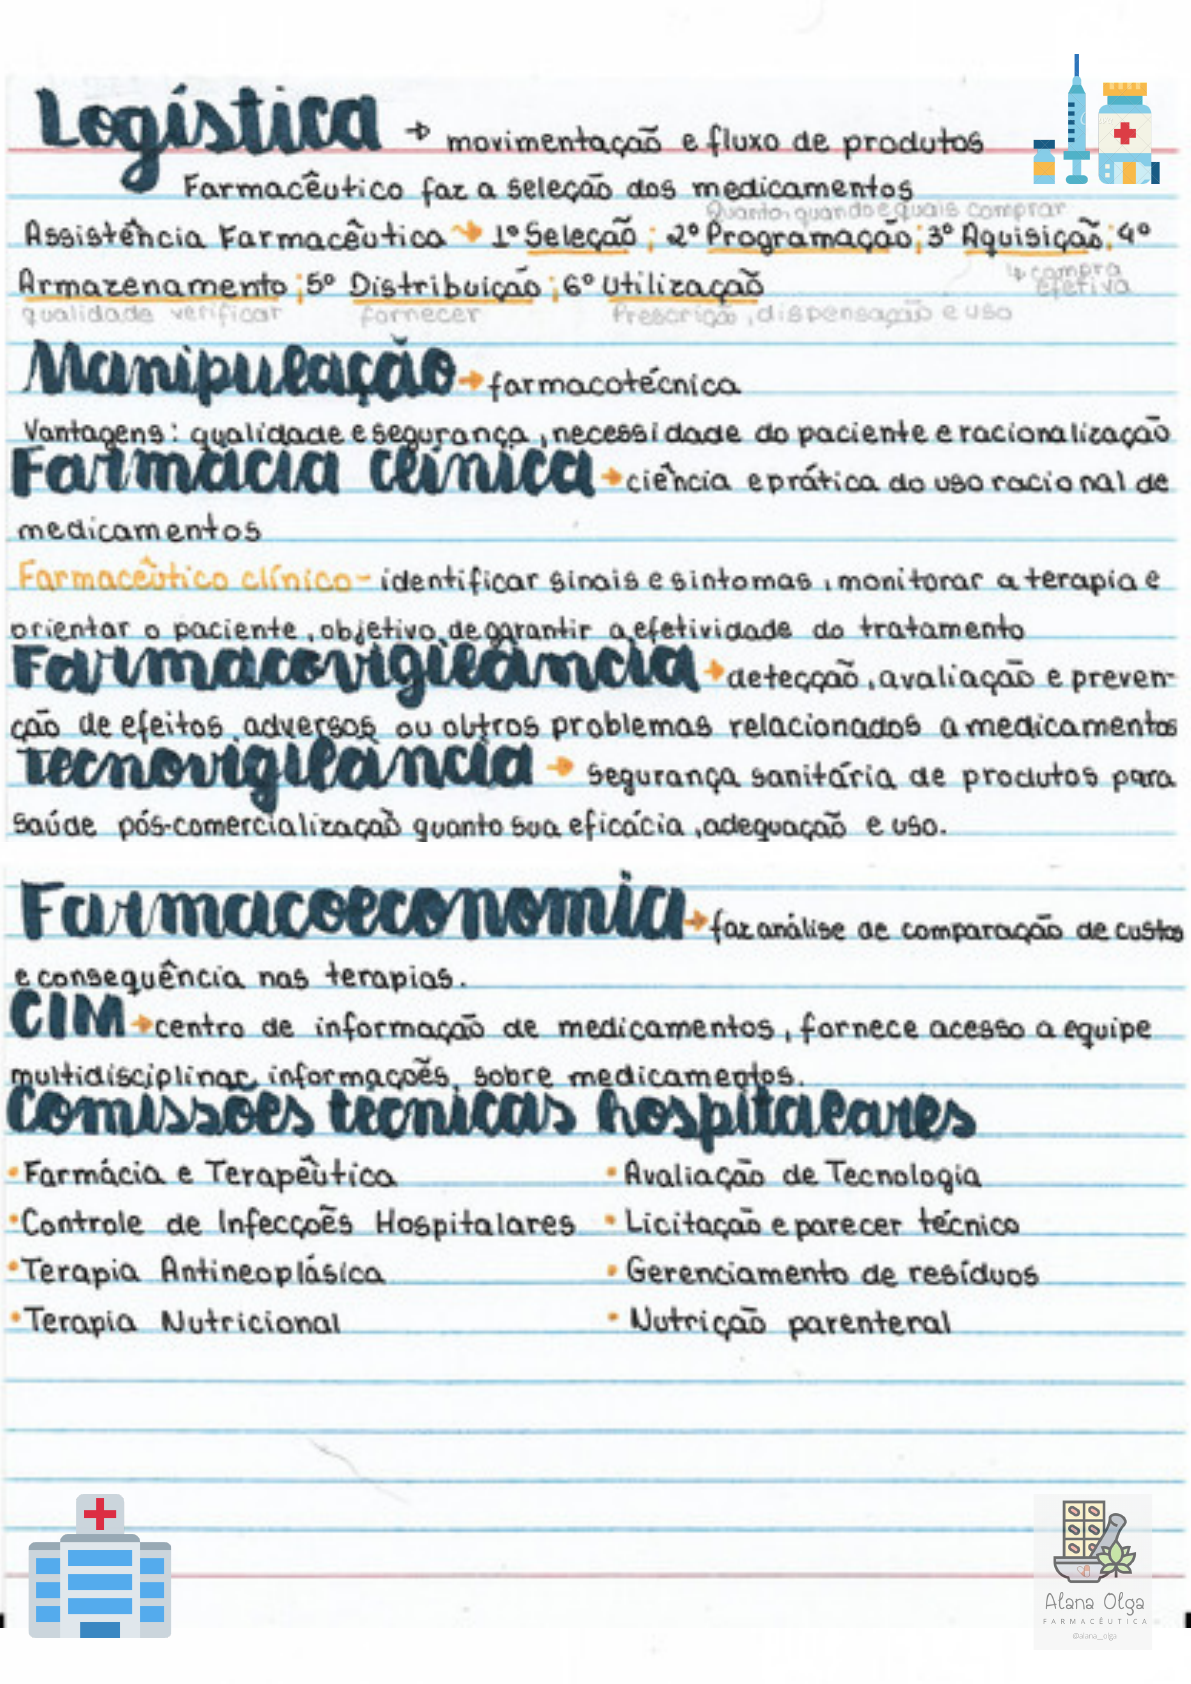 Logística → movimentação e fluxo de produtos
Farmacêutico faz a seleção dos medicamentos
Quanto, quando e quais comprar
Assistência Farmacêutica → 1º Seleção ; 2º Programação ; 3º Aquisição ; 4º
↳ compra efetiva
Armazenamento ; 5º Distribuição ; 6º Utilização
qualidade verificar fornecer Prescrição, dispensação e uso
Manipulação → farmacotécnica
Vantagens: qualidade e segurança, necessidade do paciente e racionalização
Farmácia clínica → ciência e prática do uso racional de
medicamentos
Farmacêutico clínico - identificar sinais e sintomas, monitorar a terapia e
orientar o paciente, objetivo de garantir a efetividade do tratamento
Farmacovigilância → detecção, avaliação e preven-
ção de efeitos adversos ou outros problemas relacionados a medicamentos
Tecnovigilância → segurança sanitária de produtos para
saúde pós-comercialização quanto sua eficácia, adequação e uso.
Farmacoeconomia → faz análise de comparação de custos
e consequência nas terapias.
CIM → centro de informação de medicamentos, fornece acesso a equipe
multidisciplinar informações sobre medicamentos.
Comissões técnicas hospitalares
• Farmácia e Terapêutica
• Controle de Infecções Hospitalares
• Terapia Antineoplásica
• Terapia Nutricional
• Avaliação de Tecnologia
• Licitação e parecer técnico
• Gerenciamento de resíduos
• Nutrição parenteral
Alana Olga
FARMACÊUTICA
@alana_olga